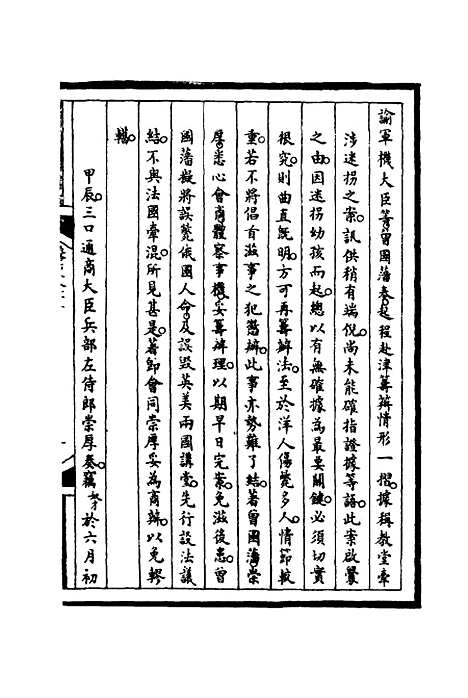 諭軍機大臣等曾國藩奏起程赴津籌辦情形一摺據稱教堂牽
涉迷拐之案訊供稍有端倪尚未能確指證據等語此案啟釁
之由因迷拐幼孩而起總以有無確據為最要關鍵必須切實
根究則曲直既明方可再籌辦法至於洋人傷斃多人情節較
重若不將倡首滋事之犯懲辦此事亦勢難了結著曾國藩崇
厚悉心會商體察事機妥籌辦理以期早日完案免滋後患曾
國藩擬將誤斃俄國人命及誤毀英美兩國講堂先行設法議
結不與法國牽混所見甚是著即會同崇厚妥為商辦以免轇
轕
甲辰三口通商大臣兵部左侍郎崇厚奏竊奴才於六月初